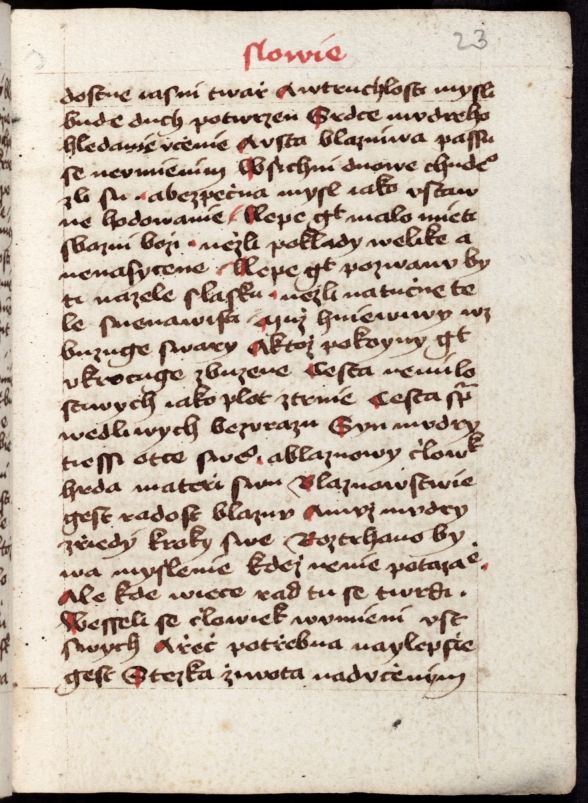 slowie
23
dostne iasni twarz A wtruchlosti mysli
bude duch potwrzen Srdce mudreho
hledanie vcenie A vsta blazniwa passu
se nevmienim Wssichni dnowe chudeo
zli su . a bezpeċna mysl iako vstaw
ne hodowanie . Llepe gt malo mieti
s bazni bozi . neżli poklady welike a
nenasycene . Llepe gt pozwanu by
ti nazele s lasku . neżli natuċne te
le s nenawisti Muż hniewiwy wz
buzuge swary A ktoż pokoyny gt
vkrocuge zbuzene Cesta nemilo
stiwych iako plot z trnie Cesta spra
wedliwych bez vrazu Syn mudry
tiessi otce sweo . a blaznowy ċlowiek
hrda materi swu Blaznowstwie
gest radost blaznu A muż mudry
zriedi kroky swe Roztrhano by
wa myslenie kdeż nenie potazae .
Ale kde wiece rad tu se twrdi .
Wesseli se ċlowiek w vmieni vst
swych A reċ potrebna naylepssie
gest Stezka żiwota nad vċenym